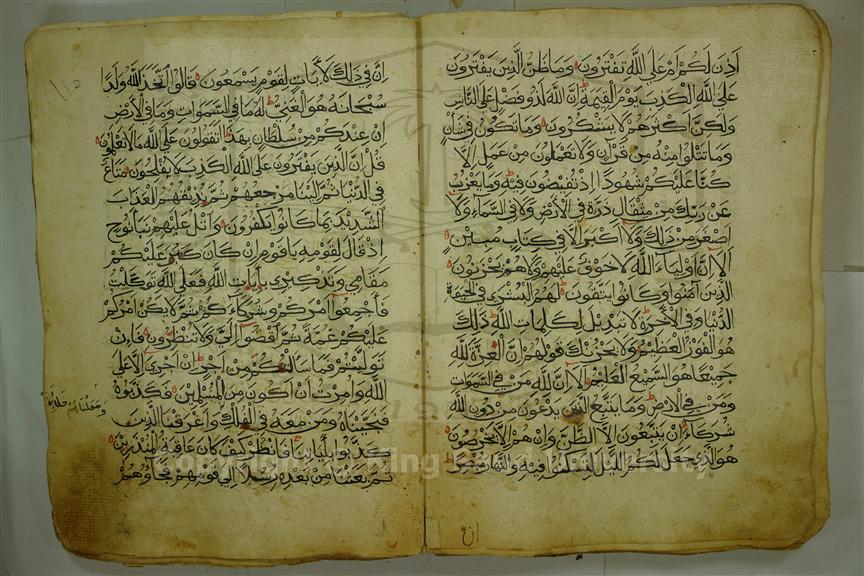 أذن لكم أم على الله تفترون وما ظن الذين يفترون
على الله الكذب يوم القيمة إن الله لذو فضل على الناس
ولكن أكثرهم لا يشكرون وما تكون في شأن
وما تتلوا منه من قرآن ولا تعملون من عمل إلا
كنا عليكم شهودا إذ تفيضون فيه وما يعزب
عن ربك من مثقال ذرة في الأرض ولا في السماء ولا
أصغر من ذلك ولا أكبر إلا في كتاب مبين
ألا إن أولياء الله لا خوف عليهم ولا هم يحزنون
الذين آمنوا وكانوا يتقون لهم البشرى في الحيوة
الدنيا وفي الآخرة لا تبديل لكلمات الله ذلك
هو الفوز العظيم ولا يحزنك قولهم إن العزة لله
جميعا هو السميع العليم ألا إن الله من في السموات
ومن في الأرض وما يتبع الذين يدعون من دون الله
شركاء إن يتبعون إلا الظن وإن هم إلا يخرصون
هو الذي جعل لكم الليل لتسكنوا فيه والنهار مبصرا
إن
إن في ذلك لآيات لقوم يسمعون قالوا اتخذ الله ولدا
سبحانه هو الغني له ما في السموات وما في الأرض
إن عندكم من سلطان بهذا أتقولون على الله ما لا تعلمون
قل إن الذين يفترون على الله الكذب لا يفلحون متاع
في الدنيا ثم إلينا مرجعهم ثم نذيقهم العذاب
الشديد بما كانوا يكفرون واتل عليهم نبأ نوح
إذ قال لقومه يا قوم إن كان كبر عليكم
مقامي وتذكيري بآيات الله فعلى الله توكلت
فأجمعوا أمركم وشركاءكم ثم لا يكن أمركم
عليكم غمة ثم اقضوا إلي ولا تنظرون فإن
توليتم فما سألتكم من أجر إن أجري إلا على
الله وأمرت أن أكون من المسلمين فكذبوه
فنجيناه ومن معه في الفلك وأغرقنا الذين
وجعلناهم خلائف
كذبوا بآياتنا فانظر كيف كان عاقبة المنذرين
ثم بعثنا من بعده رسلا إلى قومهم فجاؤهم